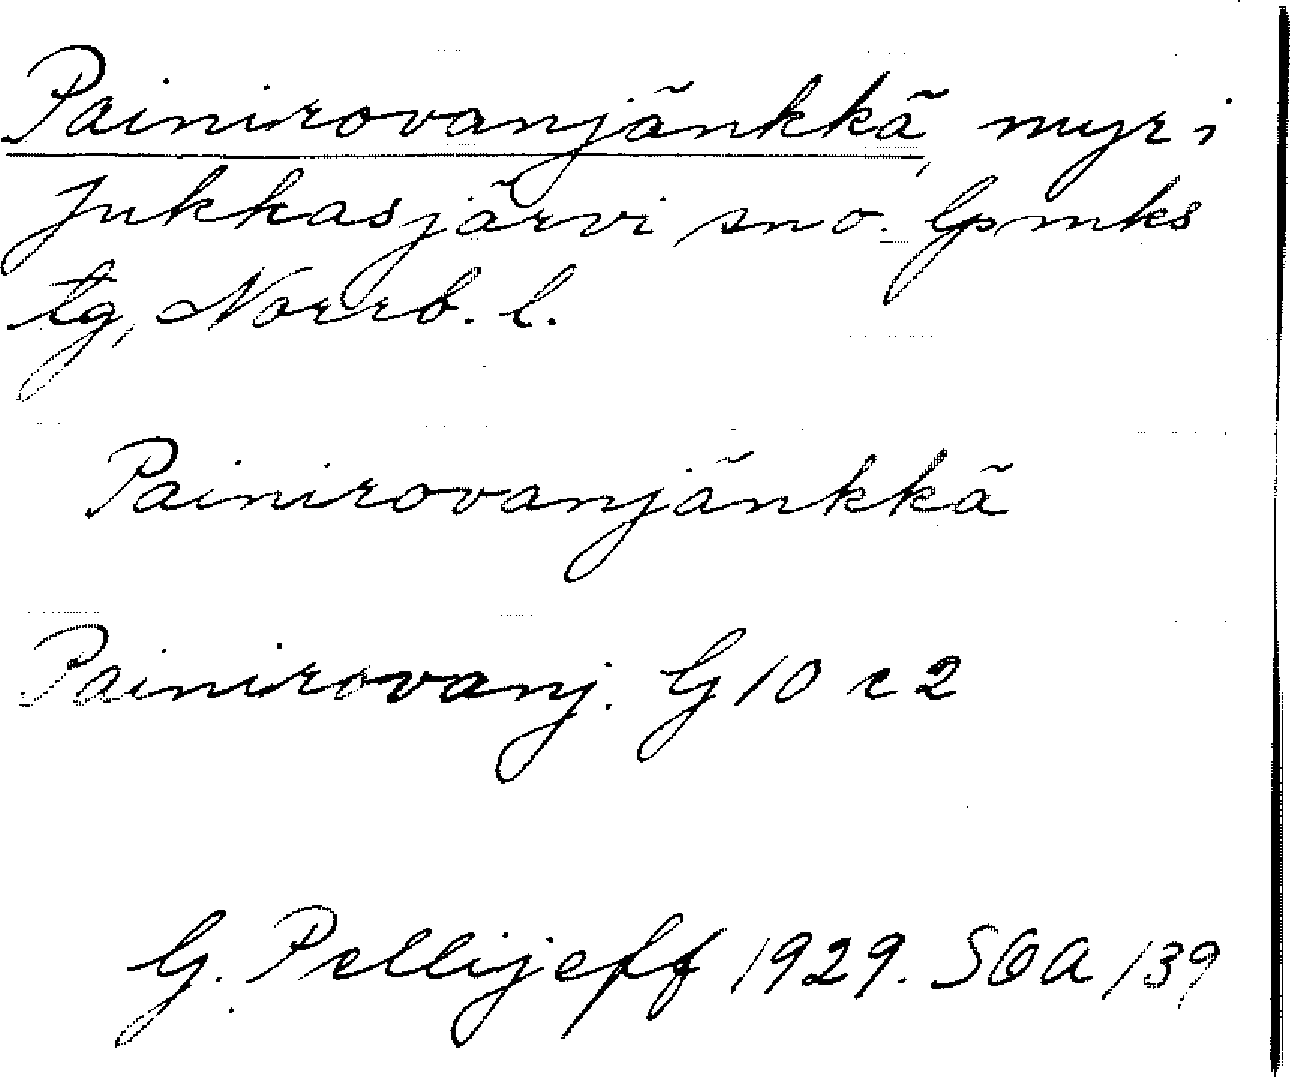 Painirovanjänkkä, myr i
Jukkasjärvi sno. Gpmks
tg, Norrb. l.
Painirovanjänkkä
Painirovanj. G 10 c 2
G. Pellijeff 1929. SOA /39